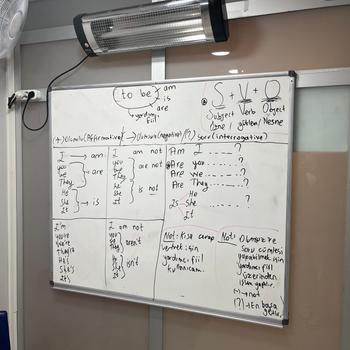 to be
am
is
are
yardımcı fiil
S + V + O
Subject Verb Object
Özne / yüklem / Nesne
(+) Olumlu (Affirmative)
(-) Olumsuz (negative)
(?) Soru (interrogative)
I → am
you
we
They
are
He
She
It
is
I am not
you
we
They
are not
He
She
It
is not
Am I ......?
Are you ......?
Are we ......?
Are They ......?
Is
He
She
It
......?
I'm
you're
we're
They're
He's
She's
It's
I am not
you
we
They
aren't
He
She
It
isn't
Not: Kısa cevap
vermek için
yardımcı fiil
kullanıcam.
Not:
Olumsuz ve
soru cümlesi
yapabilmek için
yardımcı fiil
üzerinden
işlem yapılır.
(-) → not
(?) → En başa